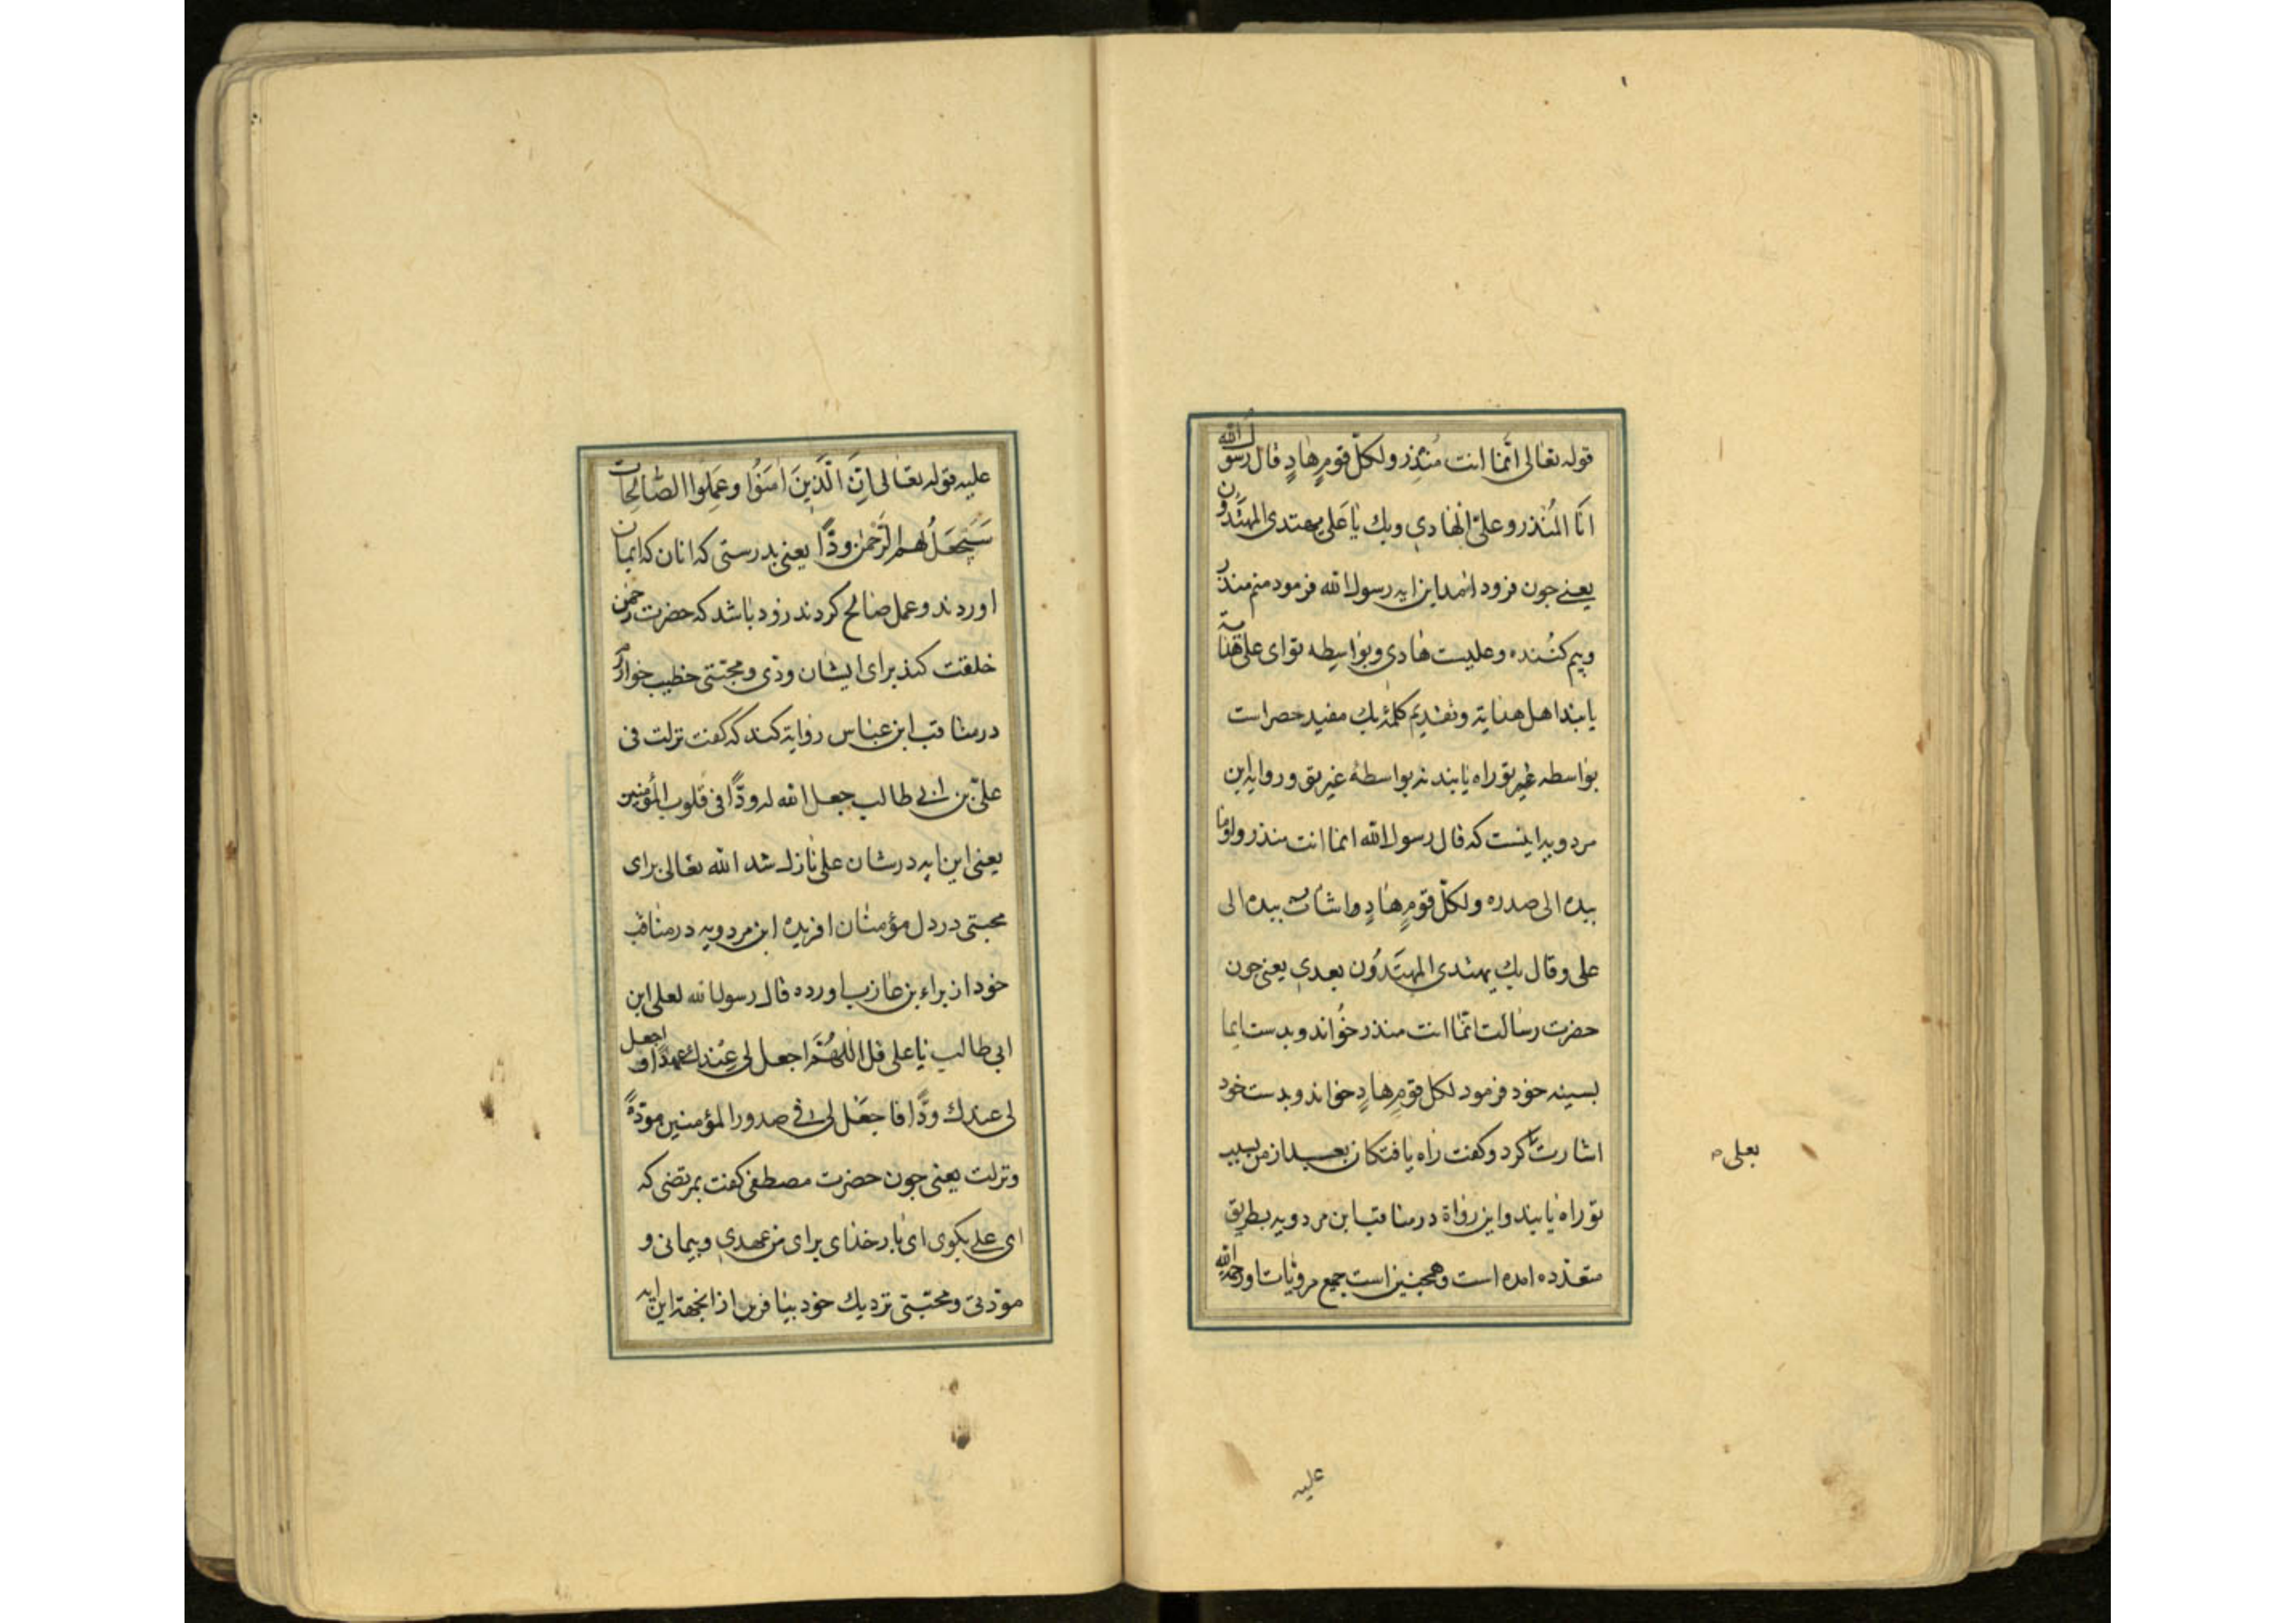 قوله تعالی انّما انت مُنذِر ولکلّ قومٍ هادٍ قال رسول الله
انَا المُنذر وعلیّ الهادی وبك یا علی یهتدی المهتدون
یعنی جون فرود امد این ایه رسول الله فرمود منم منذر
وبیم کننده وعلیست هادی وبواسطه تو ای علی هدایة
یابند اهل هدایة وتقدیم کلمهٔ بك مفید حصر است
بواسطه غیر تو راه یابند نه بواسطهٔ غیر تو وروایه ابن
مردویه اینست که قال رسول الله انما انت منذر واوما
بیده الی صدره ولکلّ قومٍ هادٍ واشار بیده الی
علی وقال بك یهتدی المهتدُون بعدی یعنی جون
حضرت رسالت انّما انت منذر خواند وبدست ایما
بسینه خود فرمود لکل قومٍ هادٍ خواند وبدست خود
اشارت کرد وکفت راه یافتکان بعد از من بسبب
بعلی
تو راه یابند واین رواة در مناقب ابن مردویه بطریق
متعدّده امده است وهمجنین است جمیع مرویات او رحمة الله
علیه
علیه قوله تعالی اِنَّ الَّذینَ امَنُوا وعَمِلُوا الصّالِحات
سَیَجعَلُ لهم الرَّحمٰن ودًّا یعنی بدرستی که انان که ایمان
اوردند وعمل صالح کردند زود باشد که حضرت رحمن
خلقت کند برای ایشان ودّی ومحبّتی خطیب خوارزم
در مناقب ابن عباس روایة کند که کفت نزلت فی
علیّ بن ابی طالب جعل الله له ودًّا فی قلوب المؤمنین
یعنی این ایه در شان علی نازل شد الله تعالی برای
محبتی در دل مؤمنان افریده ابن مردویه در مناقب
خود از براء بن عازب اورده قال رسول الله لعلی ابن
ابی طالب یا علی قل اللّهُمَّ اجعل لی عِندك عهدًا واجعل
لی عندك ودًّا فاجعَل لی فی صدور المؤمنین مودّةً
ونزلت یعنی جون حضرت مصطفی کفت بمرتضی که
ای علی بکوی ای بار خدای برای من عهدی وبیمانی و
مودّتی ومحبّتی نزدیك خود بیافرین از انجهة این ایه